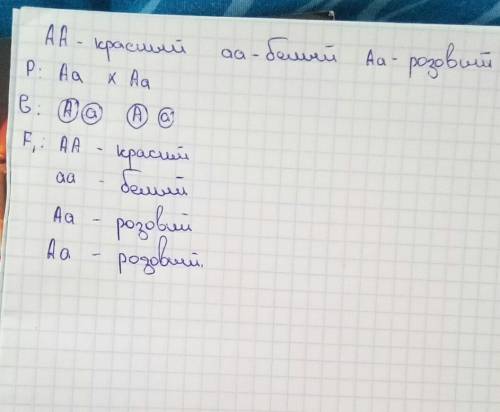 АА - красний аа - белий Аа - розовий
Р: Аа х Аа
G: А а А а
F₁: АА - красий
аа - белий
Аа - розовий
Аа - розовий.